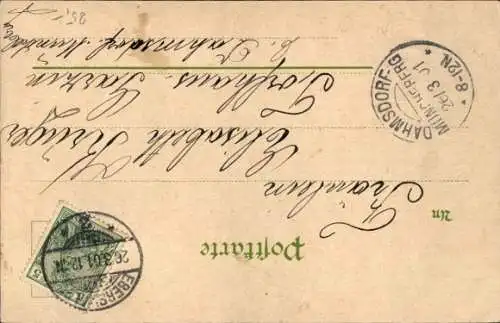 Postkarte
An
Fräulein
Elisabeth Krüger
Forsthaus Garzin
b. Dahmsdorf-Müncheberg
DAHMSDORF-
MÜNCHEBERG
26/3 01
8-12N.
EBERS
26.3.01.12-
5
25,-